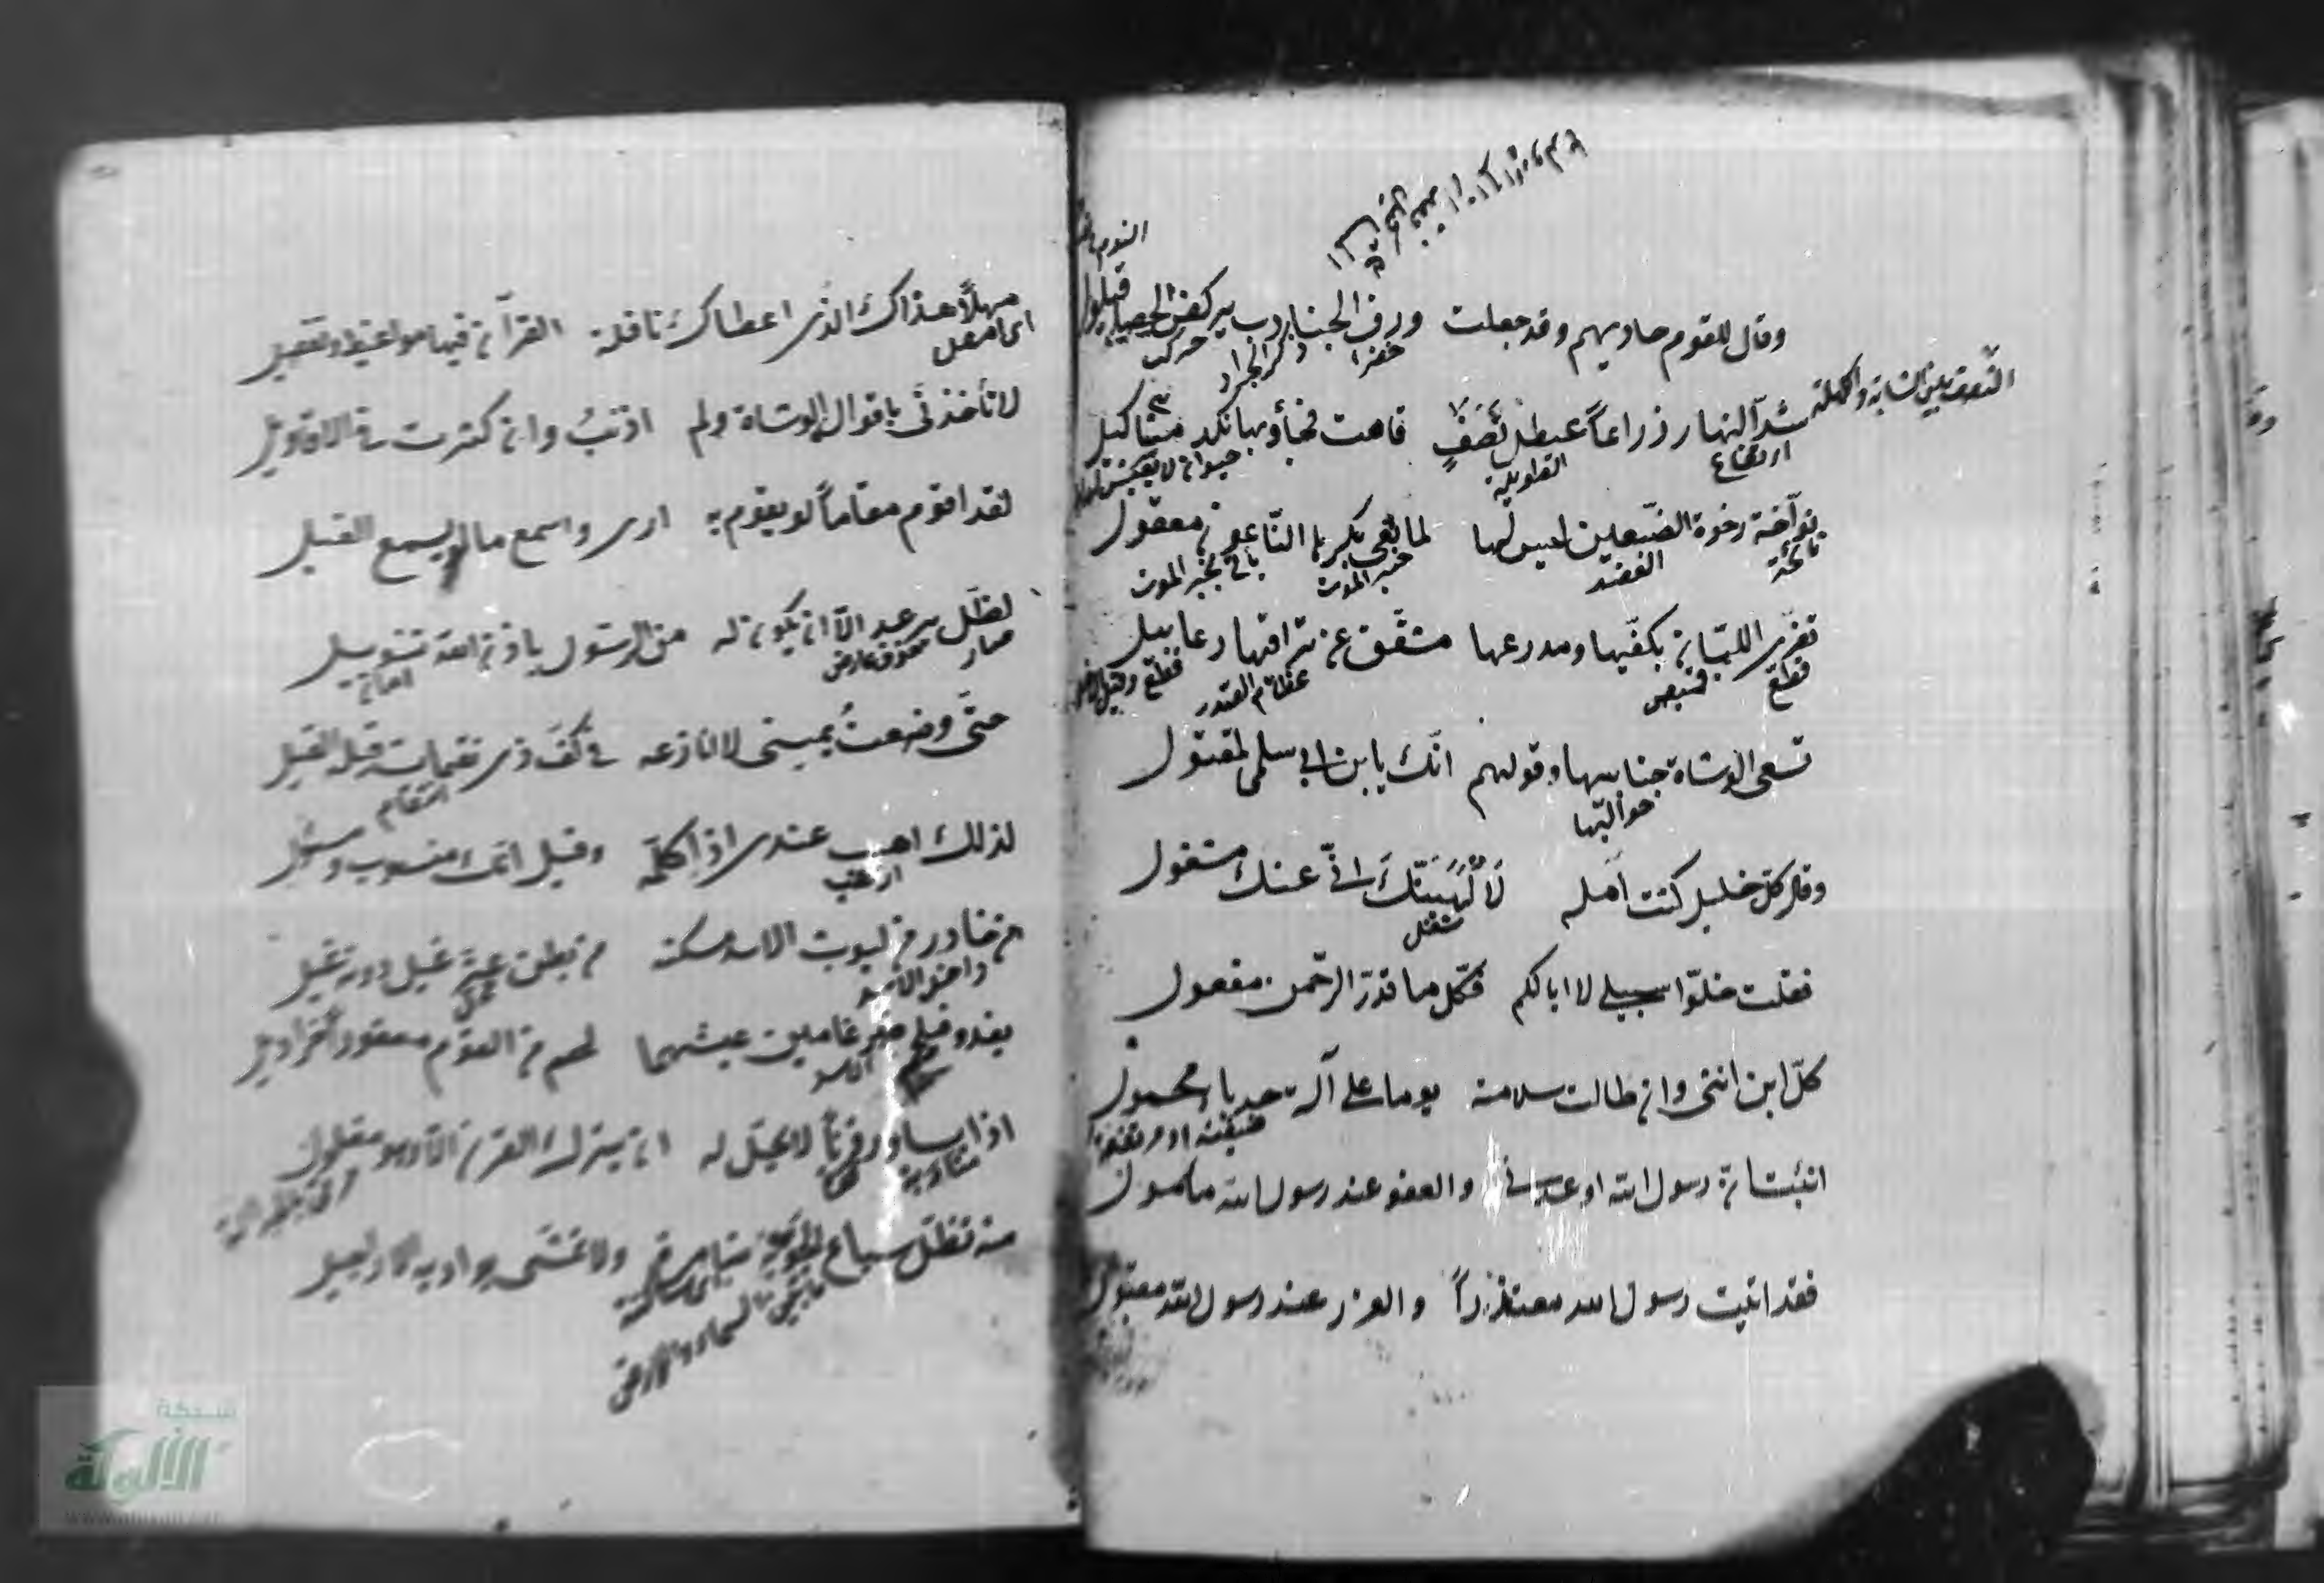 النوم
وقال للقوم حاديهم وقد جعلت ورق الجنادب يركضن الحصا قيلوا
خضرا ذكر الجراد حركت
النصف بين الشابة والكهلة
شد النهار ذراعاً عيطل نَصَفٍ قامت فجأوبها نكد مثاكيل
ارتفاع الطويلة
نوّاحة رخوة الضبعين ليس لها لما نعى بكرها الناعون معقول
نائحة العضد خبر الموت بخبر الموت
تفرى اللبان بكفّيها ومدرعها مشقّق عن تراقيها رعابيل
قطع قميص عظام الصدر قطع
تسعى الوشاة جنابيها وقولهم انّك يابن ابى سلمى لمقتول
حواليها
وقال كل خليل كنت آمله لا أُلْهِيَنَّكَ انّى عنك مشغول
شغل
فقلت خلّوا سبيلى لا ابا لكم فكلّ ما قدّر الرحمن مفعول
كلّ ابن انثى وان طالت سلامته يوما على آلة حدباء محمول
ضيقة او مرتفعة
انبئت ان رسول الله اوعدنى والعفو عند رسول الله مأمول
فقد اتيت رسول الله معتذراً والعذر عند رسول الله مقبول
مهلاً هداك الذى اعطاك نافلة القرآن فيها مواعيظ وتفصيل
اى امهل
لا تأخذنّى باقوال الوشاة ولم اذنبُ وان كثرت فى الاقاويل
لقد اقوم مقاماً لو يقوم به ارى واسمع ما لو يسمع الفيل
لظلّ يرعد الّا ان يكون له من الرسول باذن الله تنويل
صار امان
حتّى وضعتُ يمينى لا انازعه فى كفّ ذى نقمات قيله القيل
انتقام
لذلك اهيب عندى اذ اكلّمه وقيل انّك منسوب ومسئول
ارهب
من خادر من ليوث الاسد مسكنه من بطن عثّر غيل دونه غيل
داخل الاسد محل
يغدو فيلحم ضرغامين عيشهما لحم من القوم معفور خراديل
الاسد
اذا يساور قرناً لا يحلّ له ان يترك القرن الا وهو مفلول
منه تظلّ سباع الجوّ ضامرة ولا تمشّى بواديه الاراجيل
ما بين السماء والارض